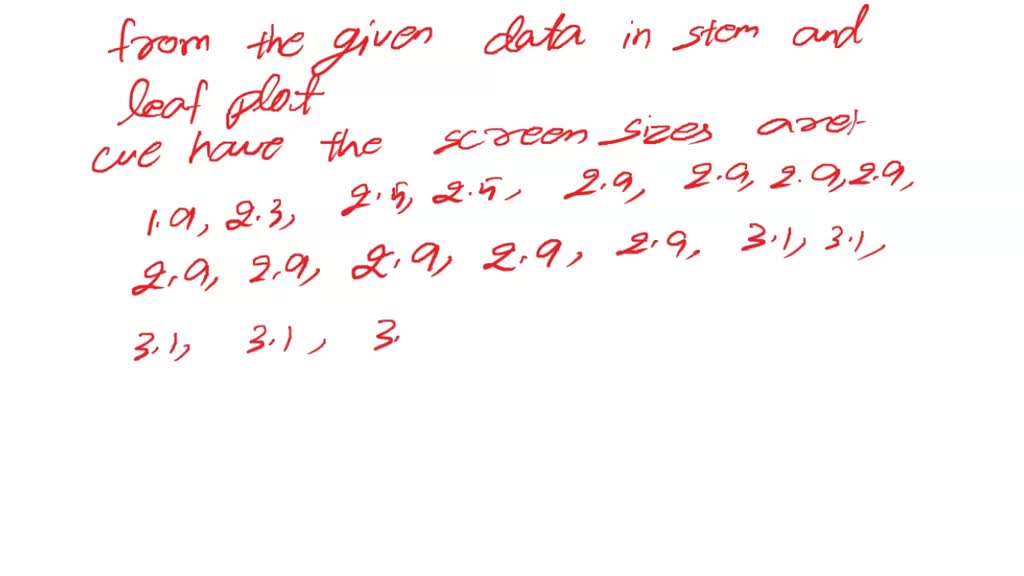 from the given data in stem and
leaf plot
we have the screen sizes are:
1.9, 2.3, 2.5, 2.5, 2.9, 2.9, 2.9, 2.9,
2.9, 2.9, 2.9, 2.9, 2.9, 3.1, 3.1,
3.1, 3.1, 3.